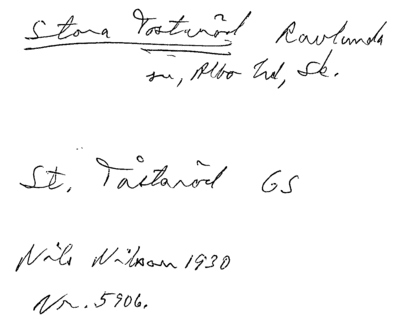 Stora Tostaröd Ravlunda
sn, Albo hd, Sk.
St. Tåstaröd GS
Nils Nilsson 1930
Nr. 5906.